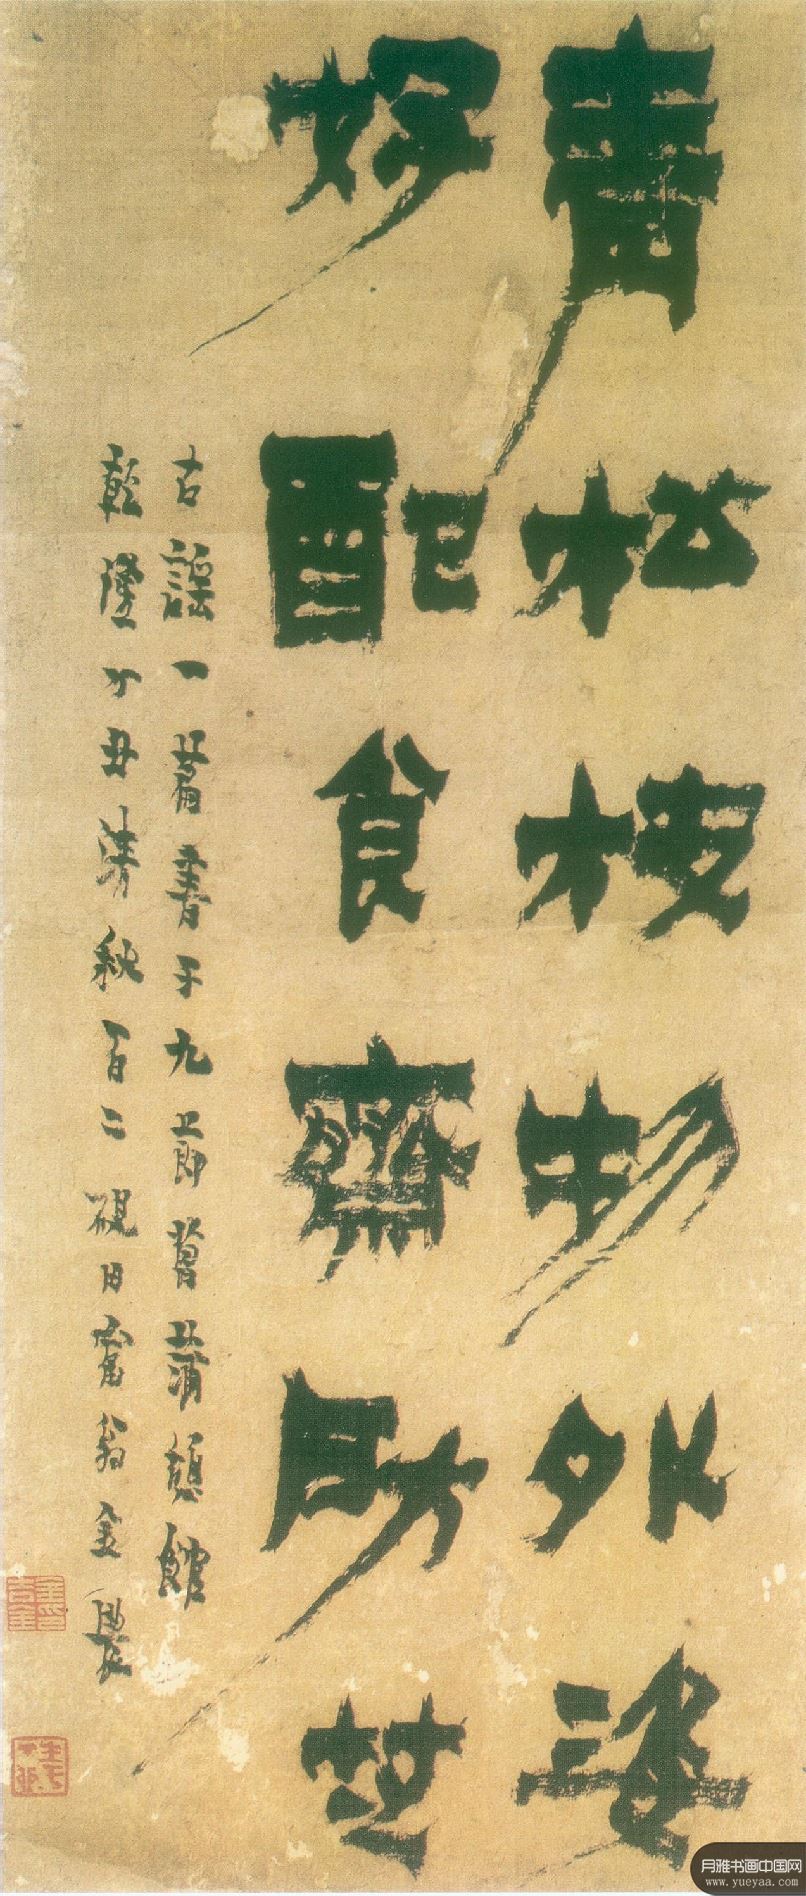 青松物外姿
好配食齋房芝
古謡一首書于九節菖蒲憩館
乾隆丁丑清秋百二硯田富翁金農
月雅书画中国网
www.yueyaa.com